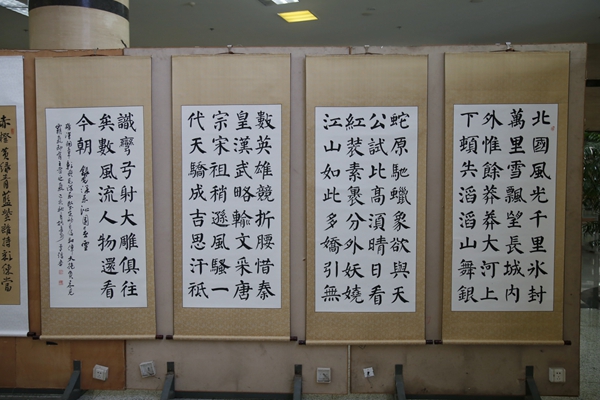 北國風光千里氷封
萬里雪飄望長城内
外惟餘莽莽大河上
下頓失滔滔山舞銀
蛇原馳蠟象欲與天
公試比高湏晴日看
紅裝素裹分外妖嬈
江山如此多嬌引無
數英雄競折腰惜秦
皇漢武略輸文采唐
宗宋祖稍遜風騷一
代天驕成吉思汗祇
識彎弓射大雕俱往
矣數風流人物還看
今朝 沁園春雪
赤橙黃綠青藍紫誰持彩練當